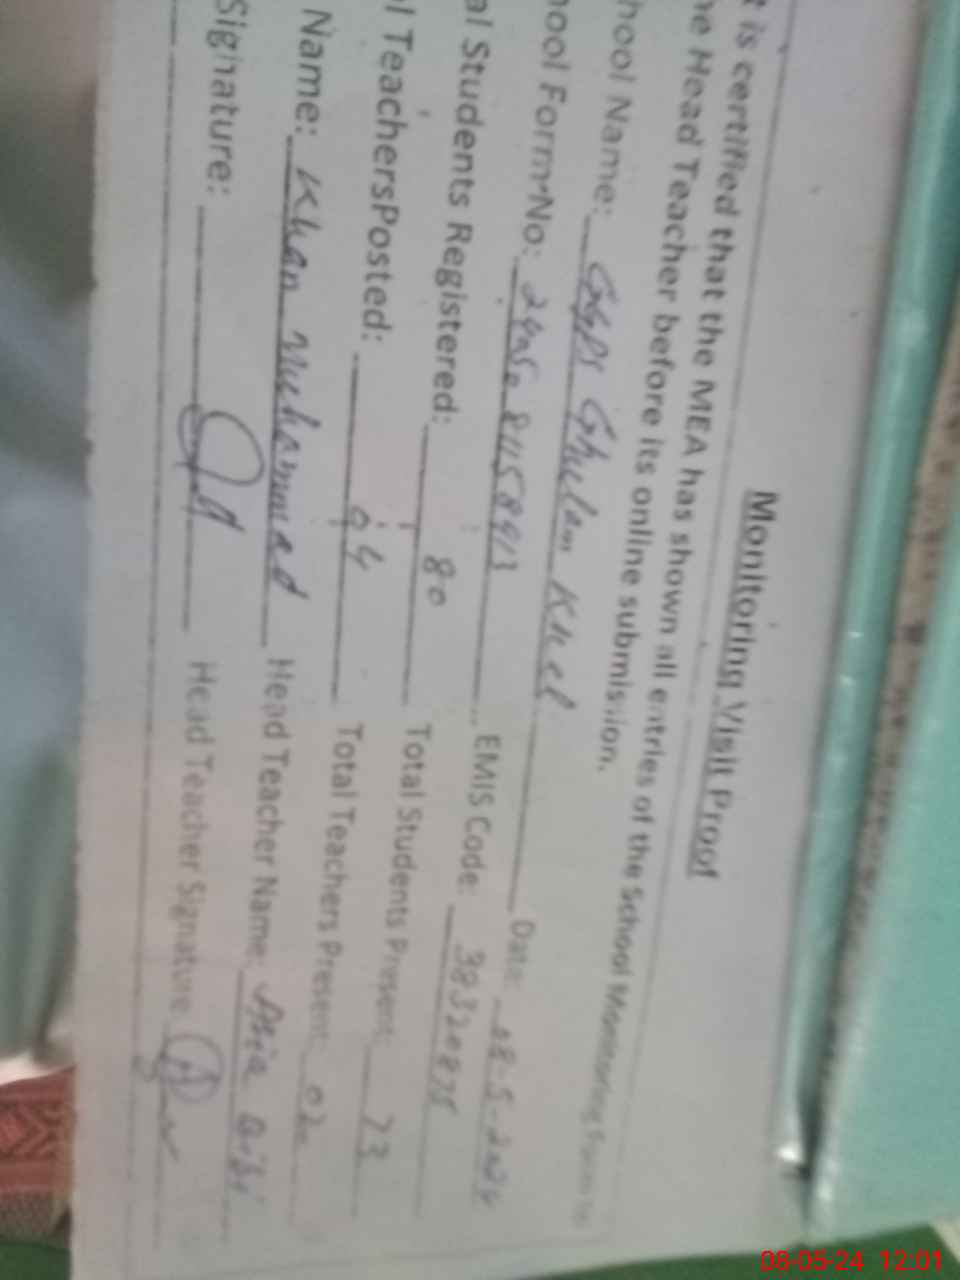 Monitoring Visit Proof
t is certified that the MEA has shown all entries of the School Monitoring Form to
he Head Teacher before its online submission.
hool Name: GGPS Ghulam Khel Date: 08-5-2024
hool Form No: EMIS Code:
al Students Registered: 80 Total Students Present: 73
l TeachersPosted: 04 Total Teachers Present: 02
Name: Khan Muhammad Head Teacher Name: Asia Bibi
Signature: Head Teacher Signature
08-05-24 12:01